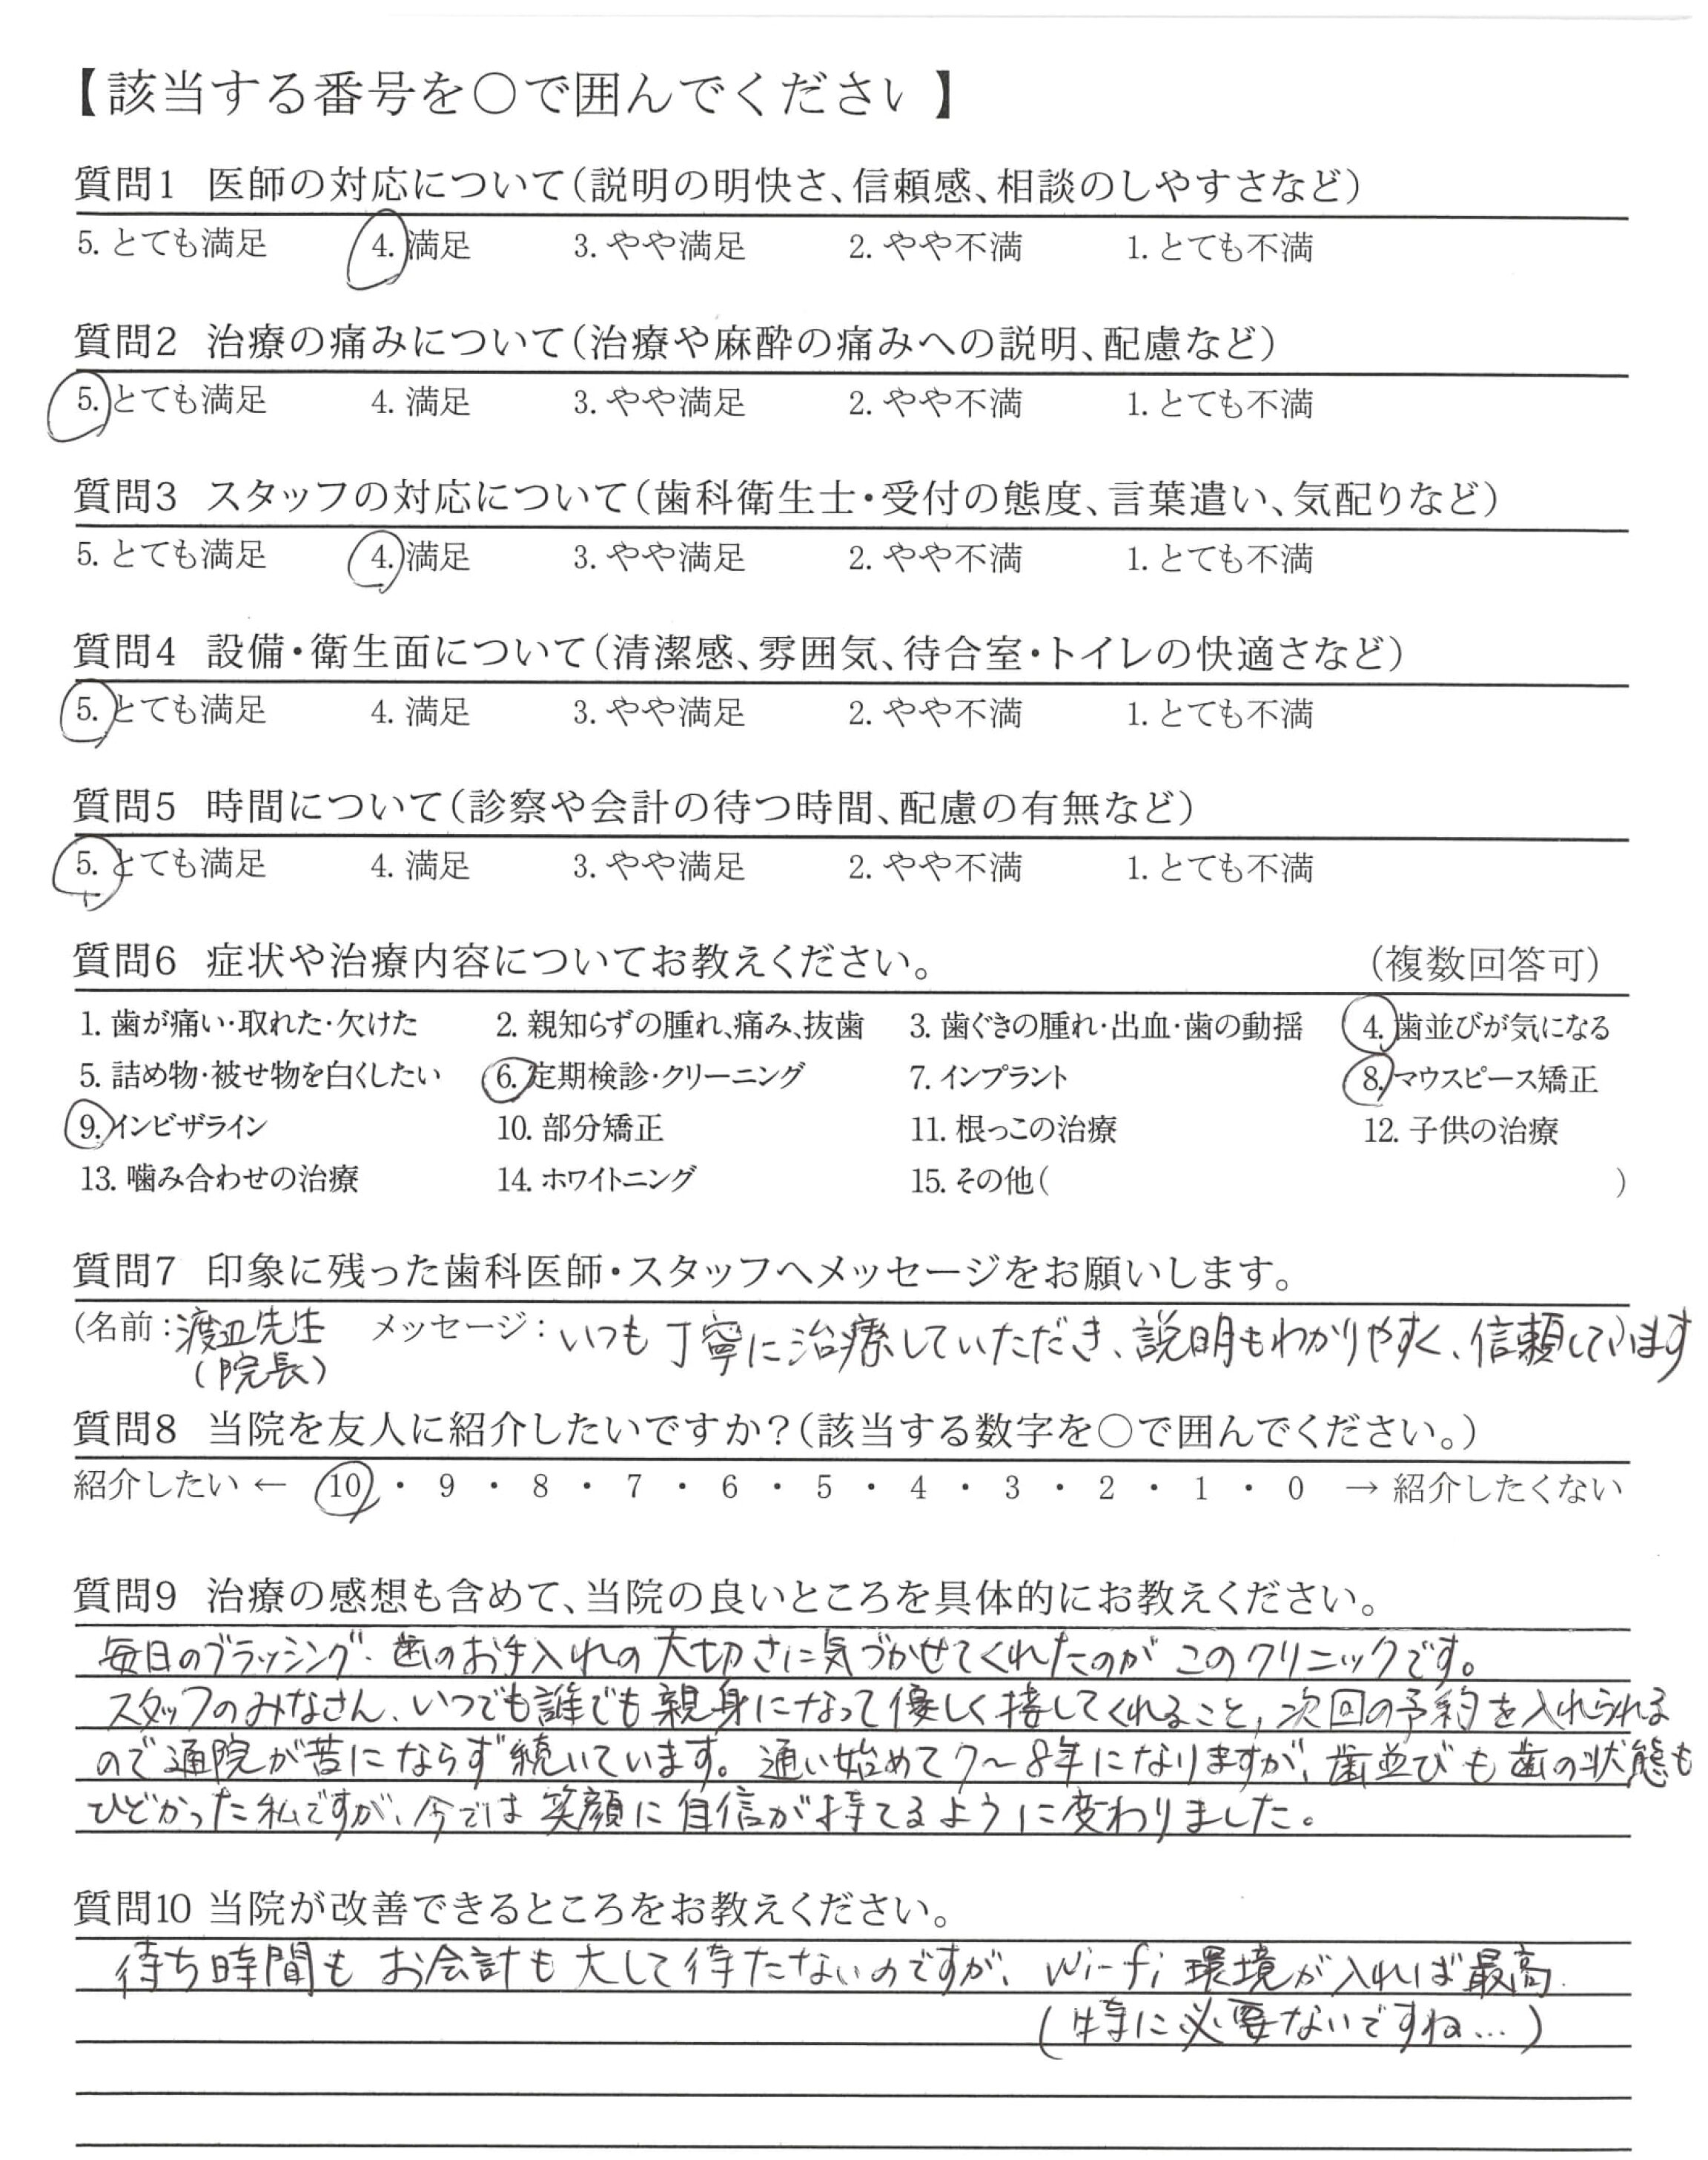 【該当する番号を〇で囲んでください】
質問1 医師の対応について(説明の明快さ、信頼感、相談のしやすさなど)
5. とても満足 4. 満足 3. やや満足 2. やや不満 1. とても不満
質問2 治療の痛みについて(治療や麻酔の痛みへの説明、配慮など)
5. とても満足 4. 満足 3. やや満足 2. やや不満 1. とても不満
質問3 スタッフの対応について(歯科衛生士・受付の態度、言葉遣い、気配りなど)
5. とても満足 4. 満足 3. やや満足 2. やや不満 1. とても不満
質問4 設備・衛生面について(清潔感、雰囲気、待合室・トイレの快適さなど)
5. とても満足 4. 満足 3. やや満足 2. やや不満 1. とても不満
質問5 時間について(診察や会計の待つ時間、配慮の有無など)
5. とても満足 4. 満足 3. やや満足 2. やや不満 1. とても不満
質問6 症状や治療内容についてお教えください。 (複数回答可)
1. 歯が痛い・取れた・欠けた 2. 親知らずの腫れ、痛み、抜歯 3. 歯ぐきの腫れ・出血・歯の動揺 4. 歯並びが気になる
5. 詰め物・被せ物を白くしたい 6. 定期検診・クリーニング 7. インプラント 8. マウスピース矯正
9. インビザライン 10. 部分矯正 11. 根っこの治療 12. 子供の治療
13. 噛み合わせの治療 14. ホワイトニング 15. その他( )
質問7 印象に残った歯科医師・スタッフへメッセージをお願いします。
(名前:渡辺先生 メッセージ:いつも丁寧に治療していただき、説明もわかりやすく、信頼しています
(院長)
質問8 当院を友人に紹介したいですか?(該当する数字を〇で囲んでください。)
紹介したい ← 10 ・ 9 ・ 8 ・ 7 ・ 6 ・ 5 ・ 4 ・ 3 ・ 2 ・ 1 ・ 0 → 紹介したくない
質問9 治療の感想も含めて、当院の良いところを具体的にお教えください。
毎日のブラッシング・歯のお手入れの大切さに気づかせてくれたのがこのクリニックです。
スタッフのみなさん、いつでも誰でも親身になって優しく接してくれること、次回の予約を入れられる
ので通院が苦にならず続いています。通い始めて7〜8年になりますが、歯並びも歯の状態も
ひどかった私ですが、今では笑顔に自信が持てるように変わりました。
質問10 当院が改善できるところをお教えください。
待ち時間もお会計も大して待たないのですが、Wi-fi環境が入れば最高.
(特に必要ないですね…)